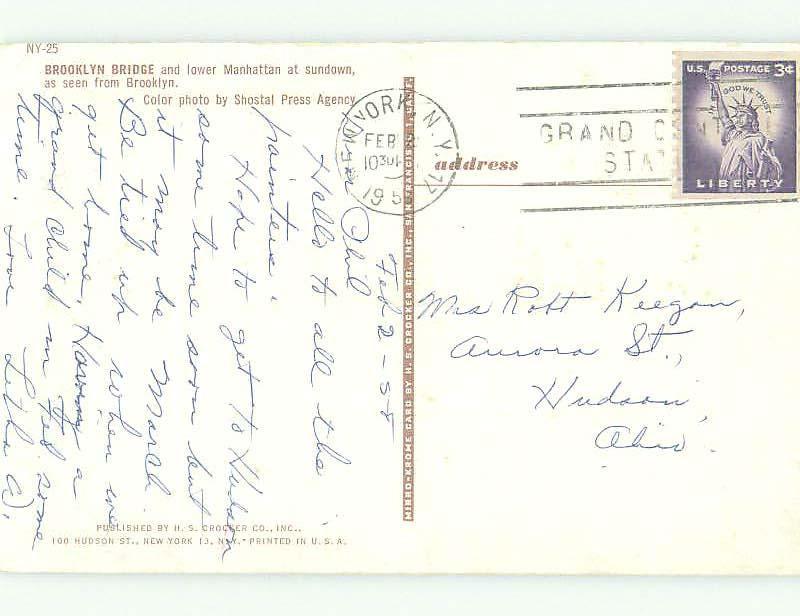 NY-25
BROOKLYN BRIDGE and lower Manhattan at sundown,
as seen from Brooklyn.
Color photo by Shostal Press Agency
Feb 2-58
Phil
Hello to all the
painters.
Hope to get to Hudson
some time soon but
it may be March
Be tied up when we
get home. Having a
grand child in Feb some
time. Love Letha
PUBLISHED BY H. S. CROCKER CO., INC.,
100 HUDSON ST., NEW YORK 13, N.Y. PRINTED IN U. S. A.
MIRRO-KROME CARD BY H. S. CROCKER CO., INC., SAN FRANCISCO 1, CALIF.
YORK, N.Y. 17
FEB
1030
195
GRAND CENT
STAT
U.S. POSTAGE 3¢
IN GOD WE TRUST
LIBERTY
address
Mrs Robt Keegan,
Aurora St.,
Hudson,
Ohio.